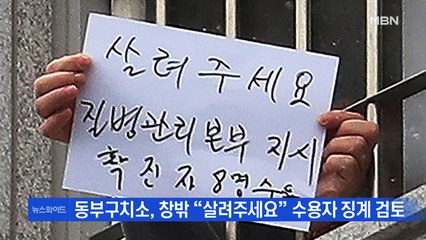 MBN
살려주세요
질병관리본부 지시
확진자 8명 수용
뉴스와이드
동부구치소, 창밖 “살려주세요” 수용자 징계 검토